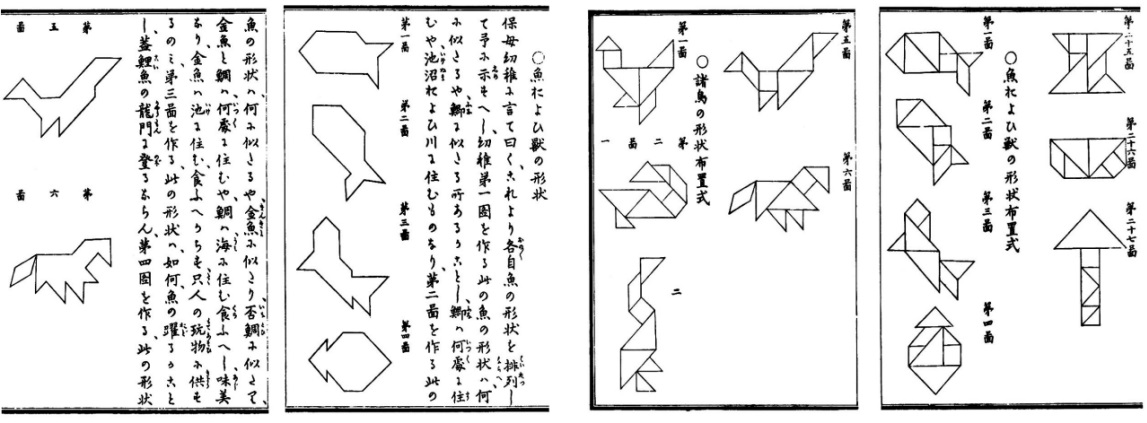 ○魚およひ獣の形状
保母幼稚に言て曰くこれより各自魚の形状を排列し
て予に示すへし幼稚第一圖を作る此の魚の形状ハ何
に似たるや鯽に似たる所あるかことし鯽ハ何處に住
むや池沼および川に住むものなり第二圖を作る此の
第一圖
第二圖
第三圖
第四圖
魚の形状ハ何に似たるや金魚に似たり否鯛に似たり
金魚と鯛ハ何處に住むや鯛ハ海に住む食ふへし味美
なり金魚ハ池に住む食ふへからす只人の玩物に供す
るのミ第三圖を作る此の形状ハ如何魚の躍るかこと
し蓋鯉魚の龍門に登るならん第四圖を作る此の形状
第五圖
第六圖
第二十五圖
第二十六圖
第二十七圖
○魚およひ獣の形状布置式
第一圖
第二圖
第三圖
第四圖
第五圖
第六圖
○諸鳥の形状布置式
第一圖
第二圖
一
二